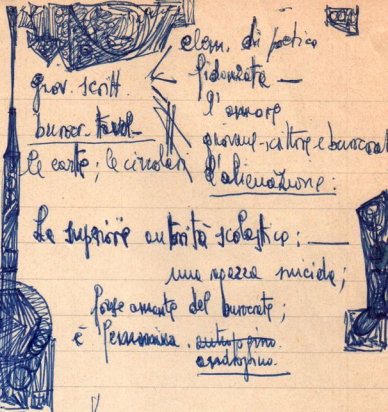 elem. di poetica
giov. scritt.
fidanzata —
l'amore
burocr.
giovane-scrittore e burocrat
le carte, le circolari
l'alienazione:
La superiore autorità scolastica: —
una ragazza suicida;
forse amante del burocrate;
è femminina.
androgino.